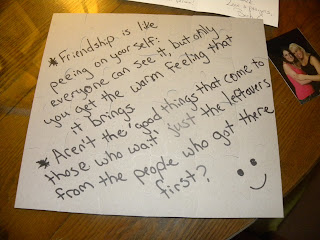 * Friendship is like
peeing on yourself:
everyone can see it, but only
you get the warm feeling that
it brings
* Aren't the "good things that come to
those who wait" just the leftovers
from the people who got there
first?